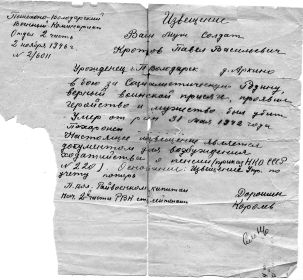 Военный Комиссариат
Отдел 2 часть
2 ноября 1946 г.
N 2/6011
Извещение
Ваш муж Солдат
Кротов Павел Васильевич
Уроженец г. П-Володарск д. Аркино
в бою за Социалистическую Родину,
верный воинской присяге, проявив
геройство и мужество был убит
Умер от ран 31 мая 1942 года
Похоронен
Настоящее извещение является
документом для возбуждения
ходатайства о пенсии (приказ НКО СССР
N 220). Основание: Извещение Упр. по
учету потерь
Райвоенком капитан
Нач. 2 части РВК ст лейтенант
Королев